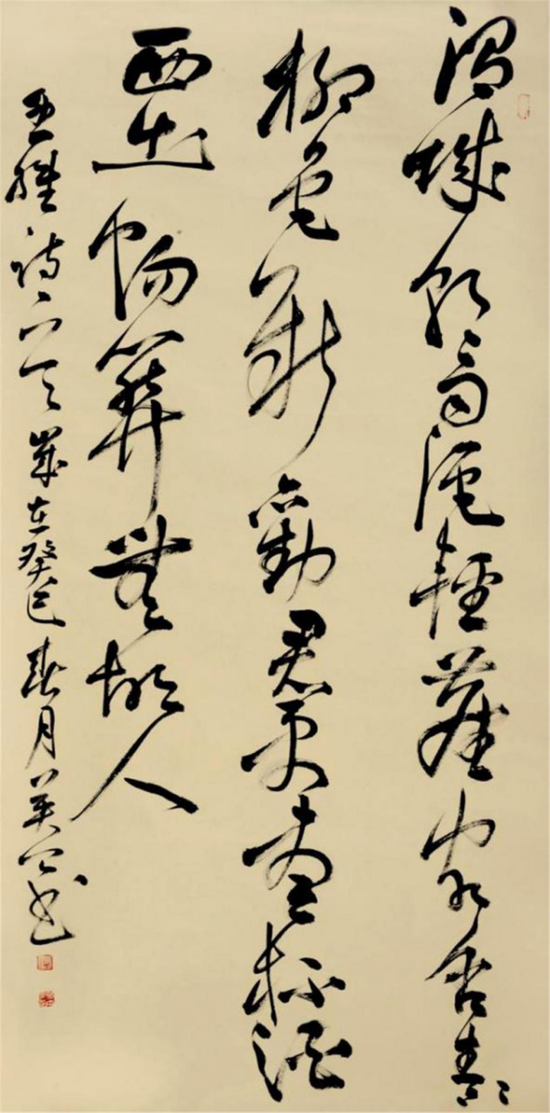 渭城朝雨浥輕塵客舍青々
柳色新勸君更盡一杯酒
西出陽關無故人
王維詩歲在癸巳春月書